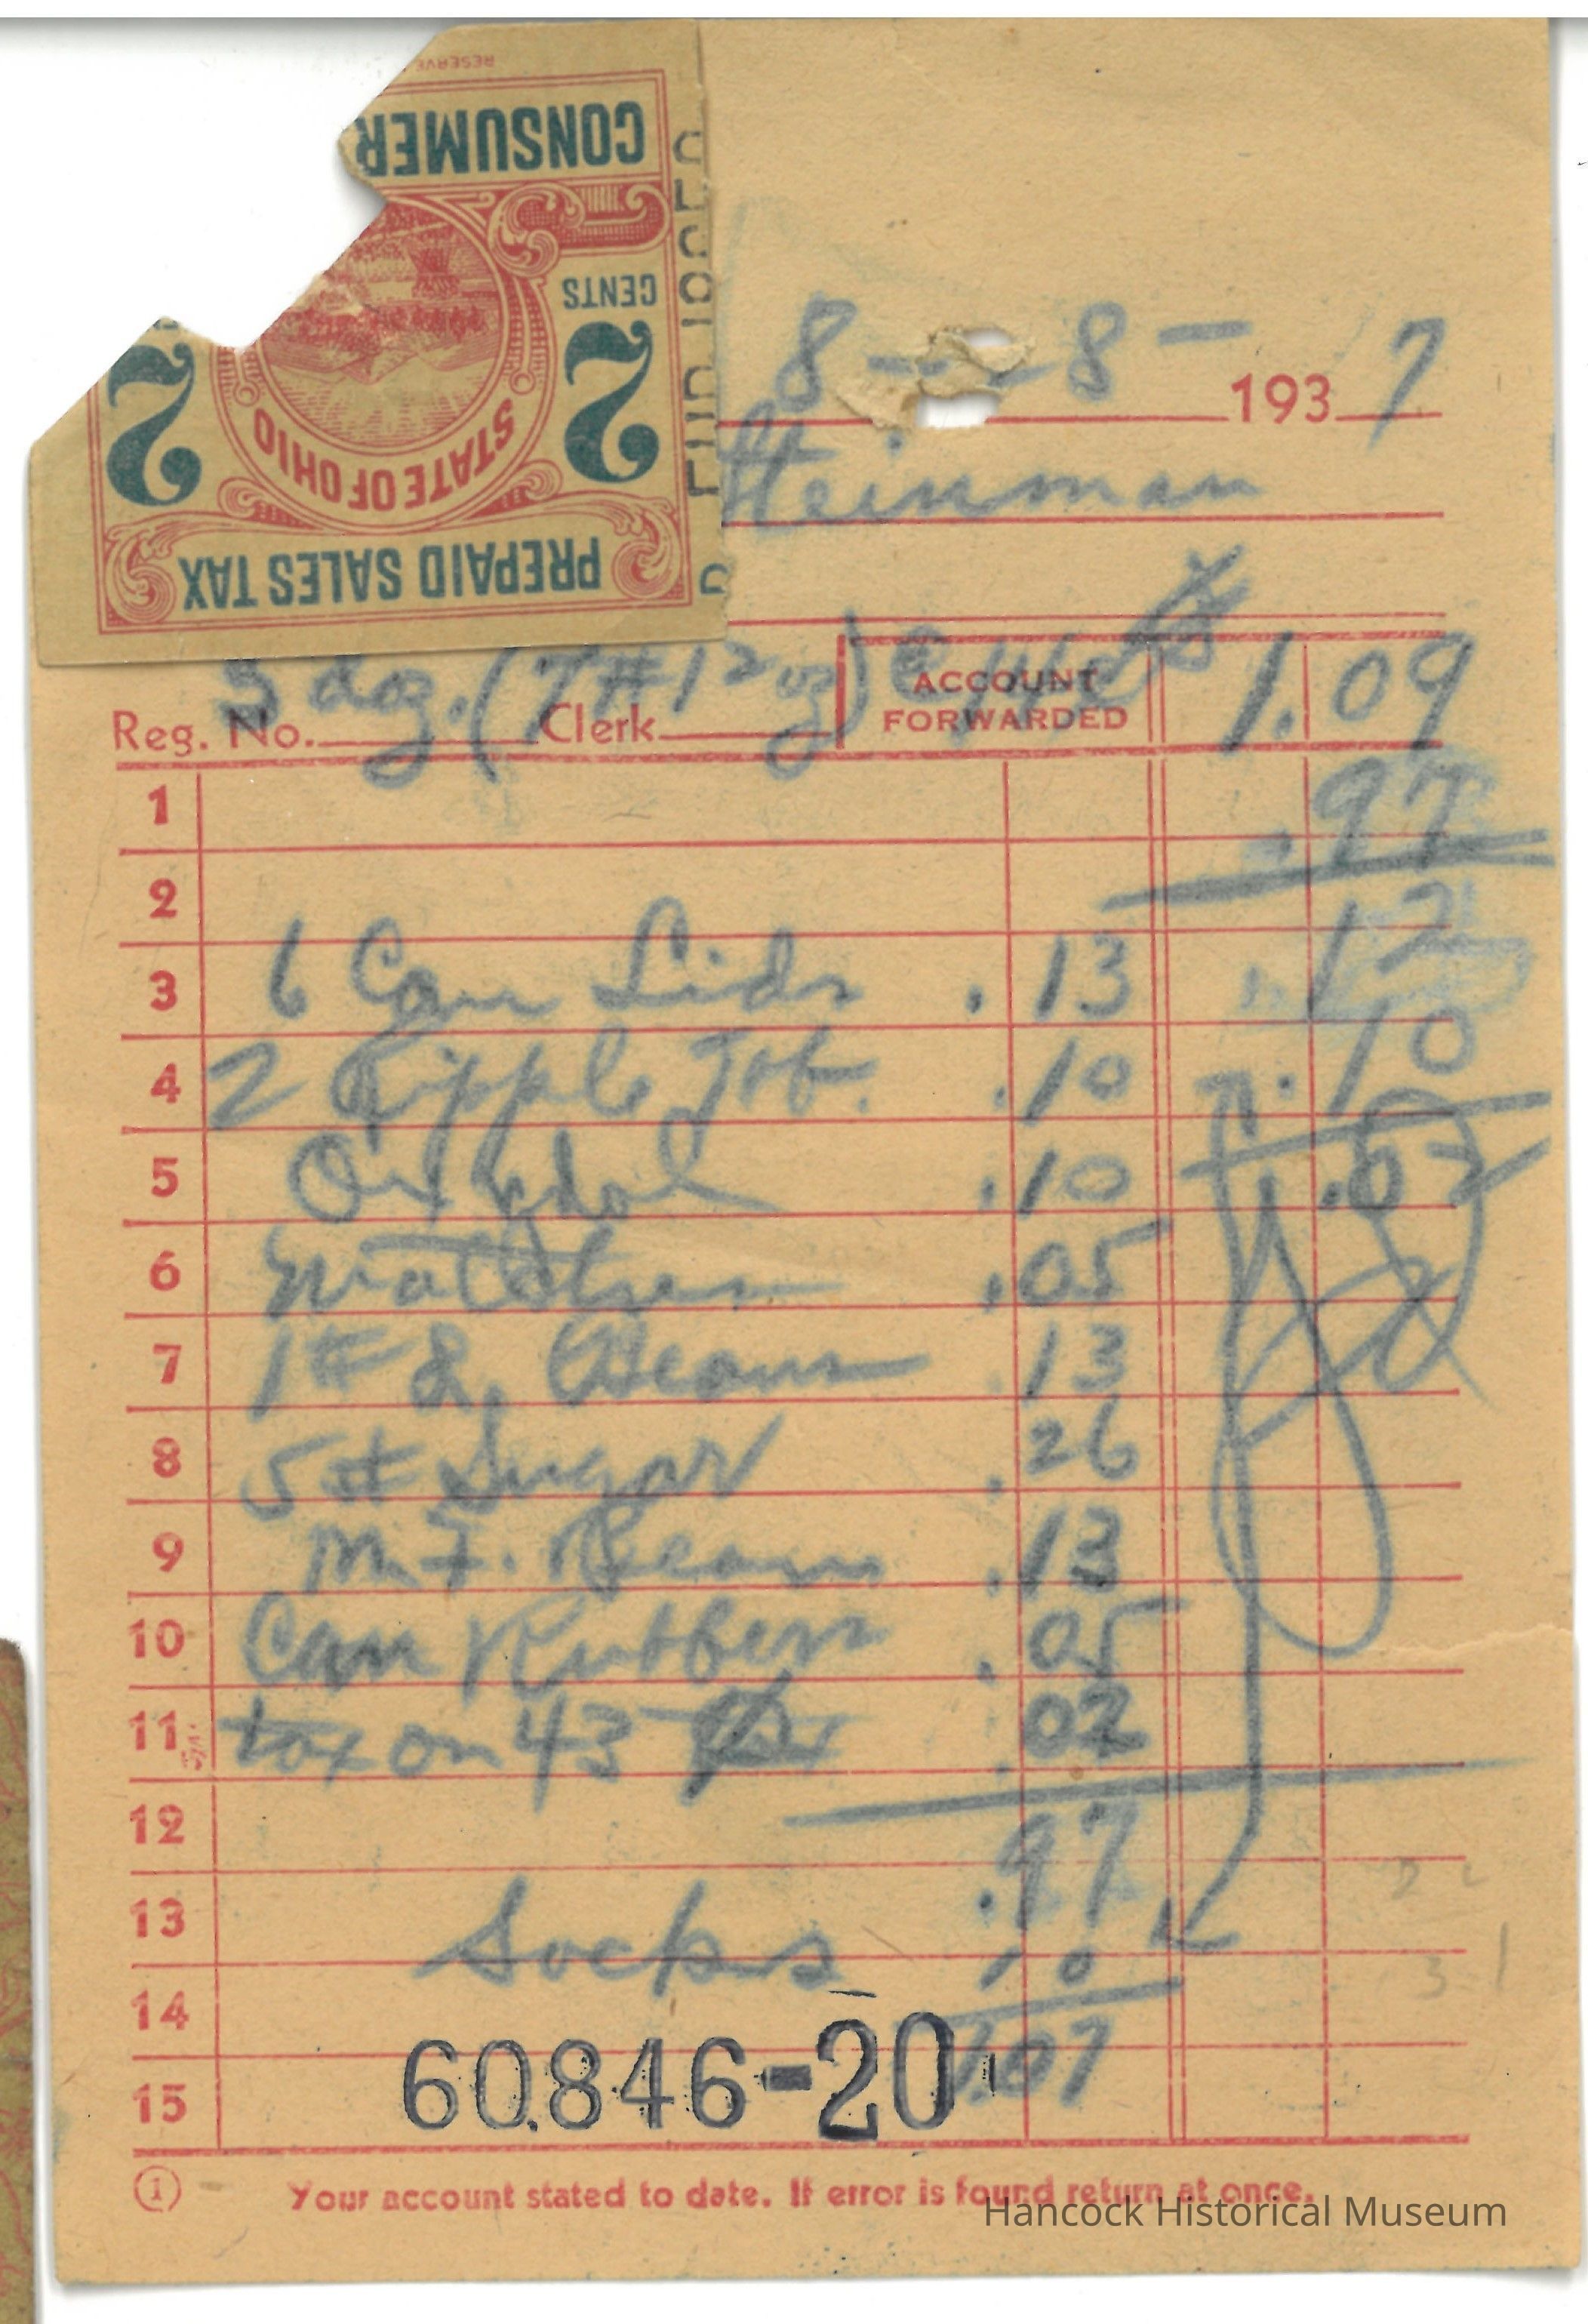 RESERVE
CONSUMER
2 CENTS 2
STATE OF OHIO
PREPAID SALES TAX
8 - - 8 - 1937
Heinman
3 doz. (7# 12 oz) @ 1.09
Reg. No. Clerk ACCOUNT FORWARDED
1 .97
2 .12
3 6 Can Lids .13
4 2 Ripple Tob. .10 .10
5 Oxydol .10 .02
6 Matches .05
7 1# & Beans .13
8 5# Sugar .26
9 M.F. Beans .13
10 Can Rubbers .05
11 tax on 43 .02
12 .97
13 Socks .10
14 1.07
15 60846-20
1 Your account stated to date. If error is found return at once.
Hancock Historical Museum